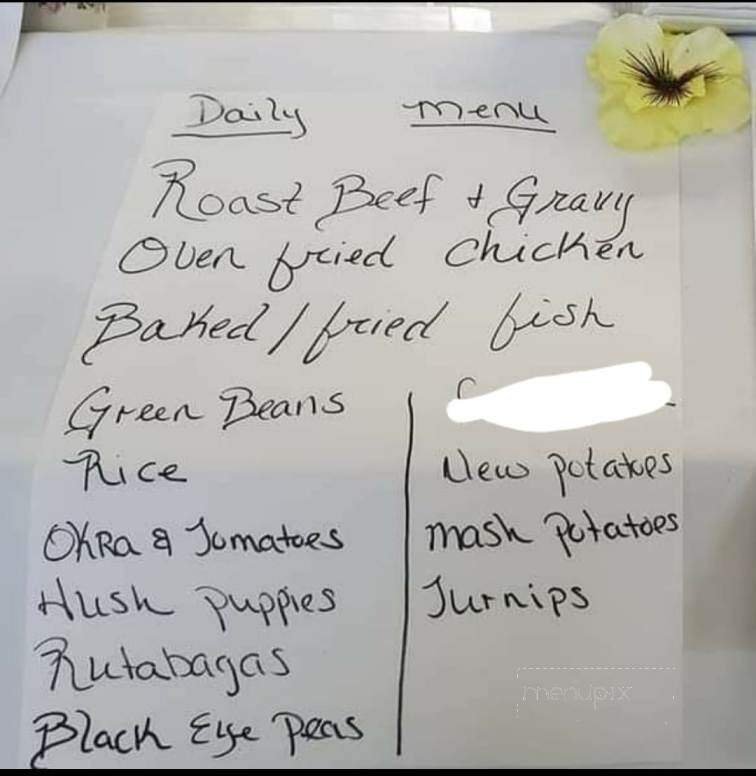 Daily Menu
Roast Beef & Gravy
Oven fried chicken
Baked / fried fish
Green Beans
Rice
Okra & Tomatoes
Hush puppies
Rutabagas
Black Eye Peas
New potatoes
mash potatoes
Turnips
menupix